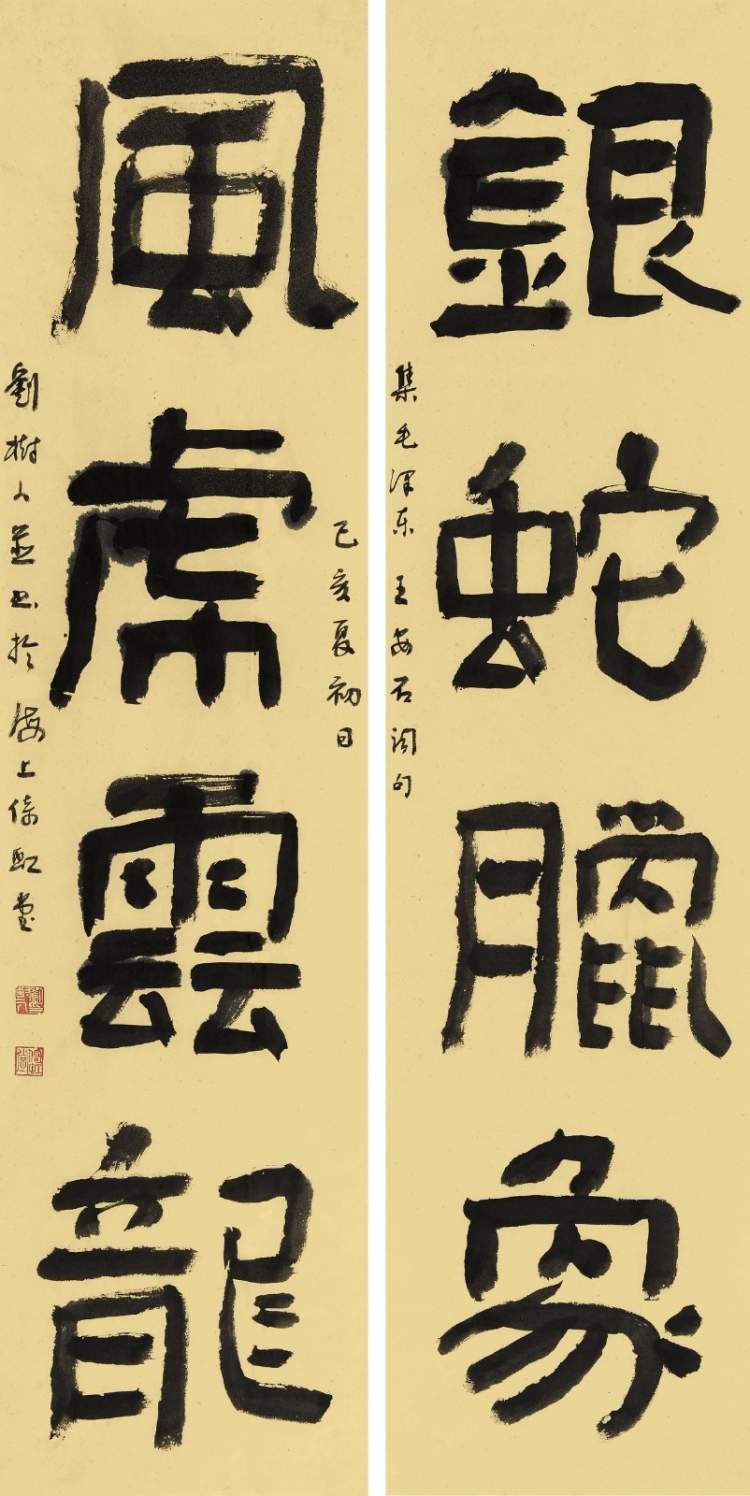 銀蛇臘象
集毛泽东 王安石詞句
風虎雲龍
己亥夏初日
劉樹人並书於海上倚虹堂